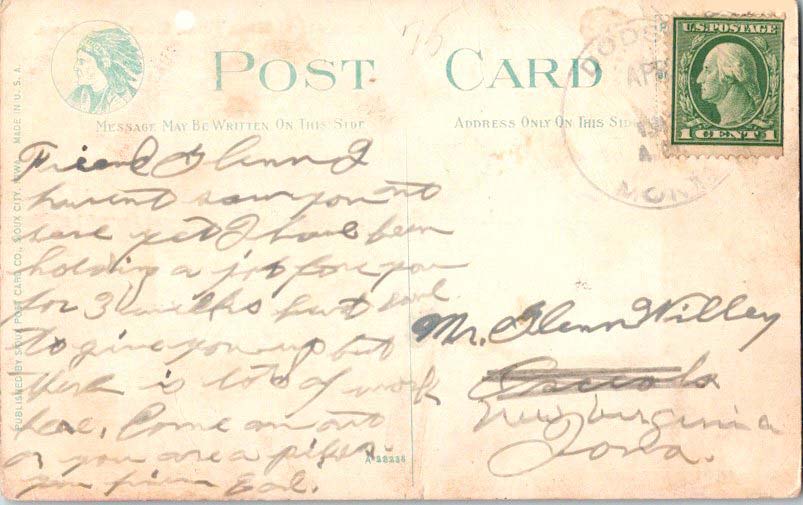 POST CARD
MESSAGE MAY BE WRITTEN ON THIS SIDE
ADDRESS ONLY ON THIS SIDE
U.S. POSTAGE
1 CENT 1
DODS
APR
MONT
PUBLISHED BY SIOUX POST CARD CO., SIOUX CITY, IOWA. MADE IN U. S. A.
Friend Glenn I
havent saw you out
here yet I have been
holding a job fore you
for 3 weekks but
to give you up but
there is lots of work
here. Come on out
or you are a
Earl.
A-22236
Mr. Glenn Willey
Osceola
New Virginia
Iowa.